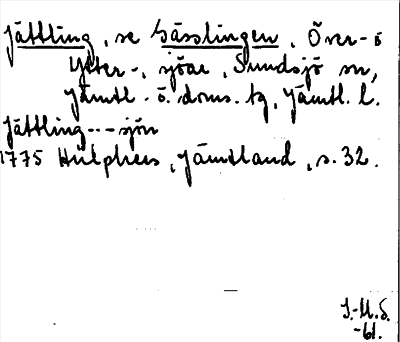 Jättling, se Gässlingen, Över- o
Ytter-, sjöar, Sundsjö sn,
Jämtl. ö. doms. tg, Jämtl. l.
Jättling---sjön
1775 Hülphers, Jämtland, s. 32.
I.-M.S.
-61.